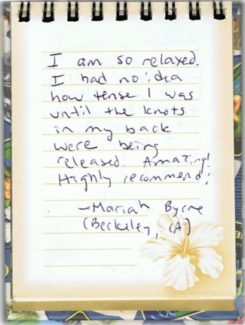 I am so relaxed.
I had no idea
how tense I was
until the knots
in my back
were being
released. Amazing!
Highly recommend!
-Mariah Byrne
(Berkeley, CA)